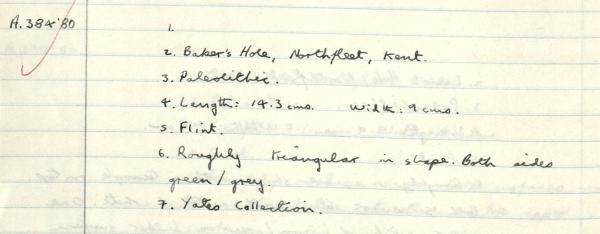 A.384'80
1.
2. Baker's Hole, Northfleet, Kent.
3. Paleolithic.
4. Length: 14.3 cms. Width: 9 cms.
5. Flint.
6. Roughly triangular in shape. Both sides
green/grey.
7. Yates Collection.